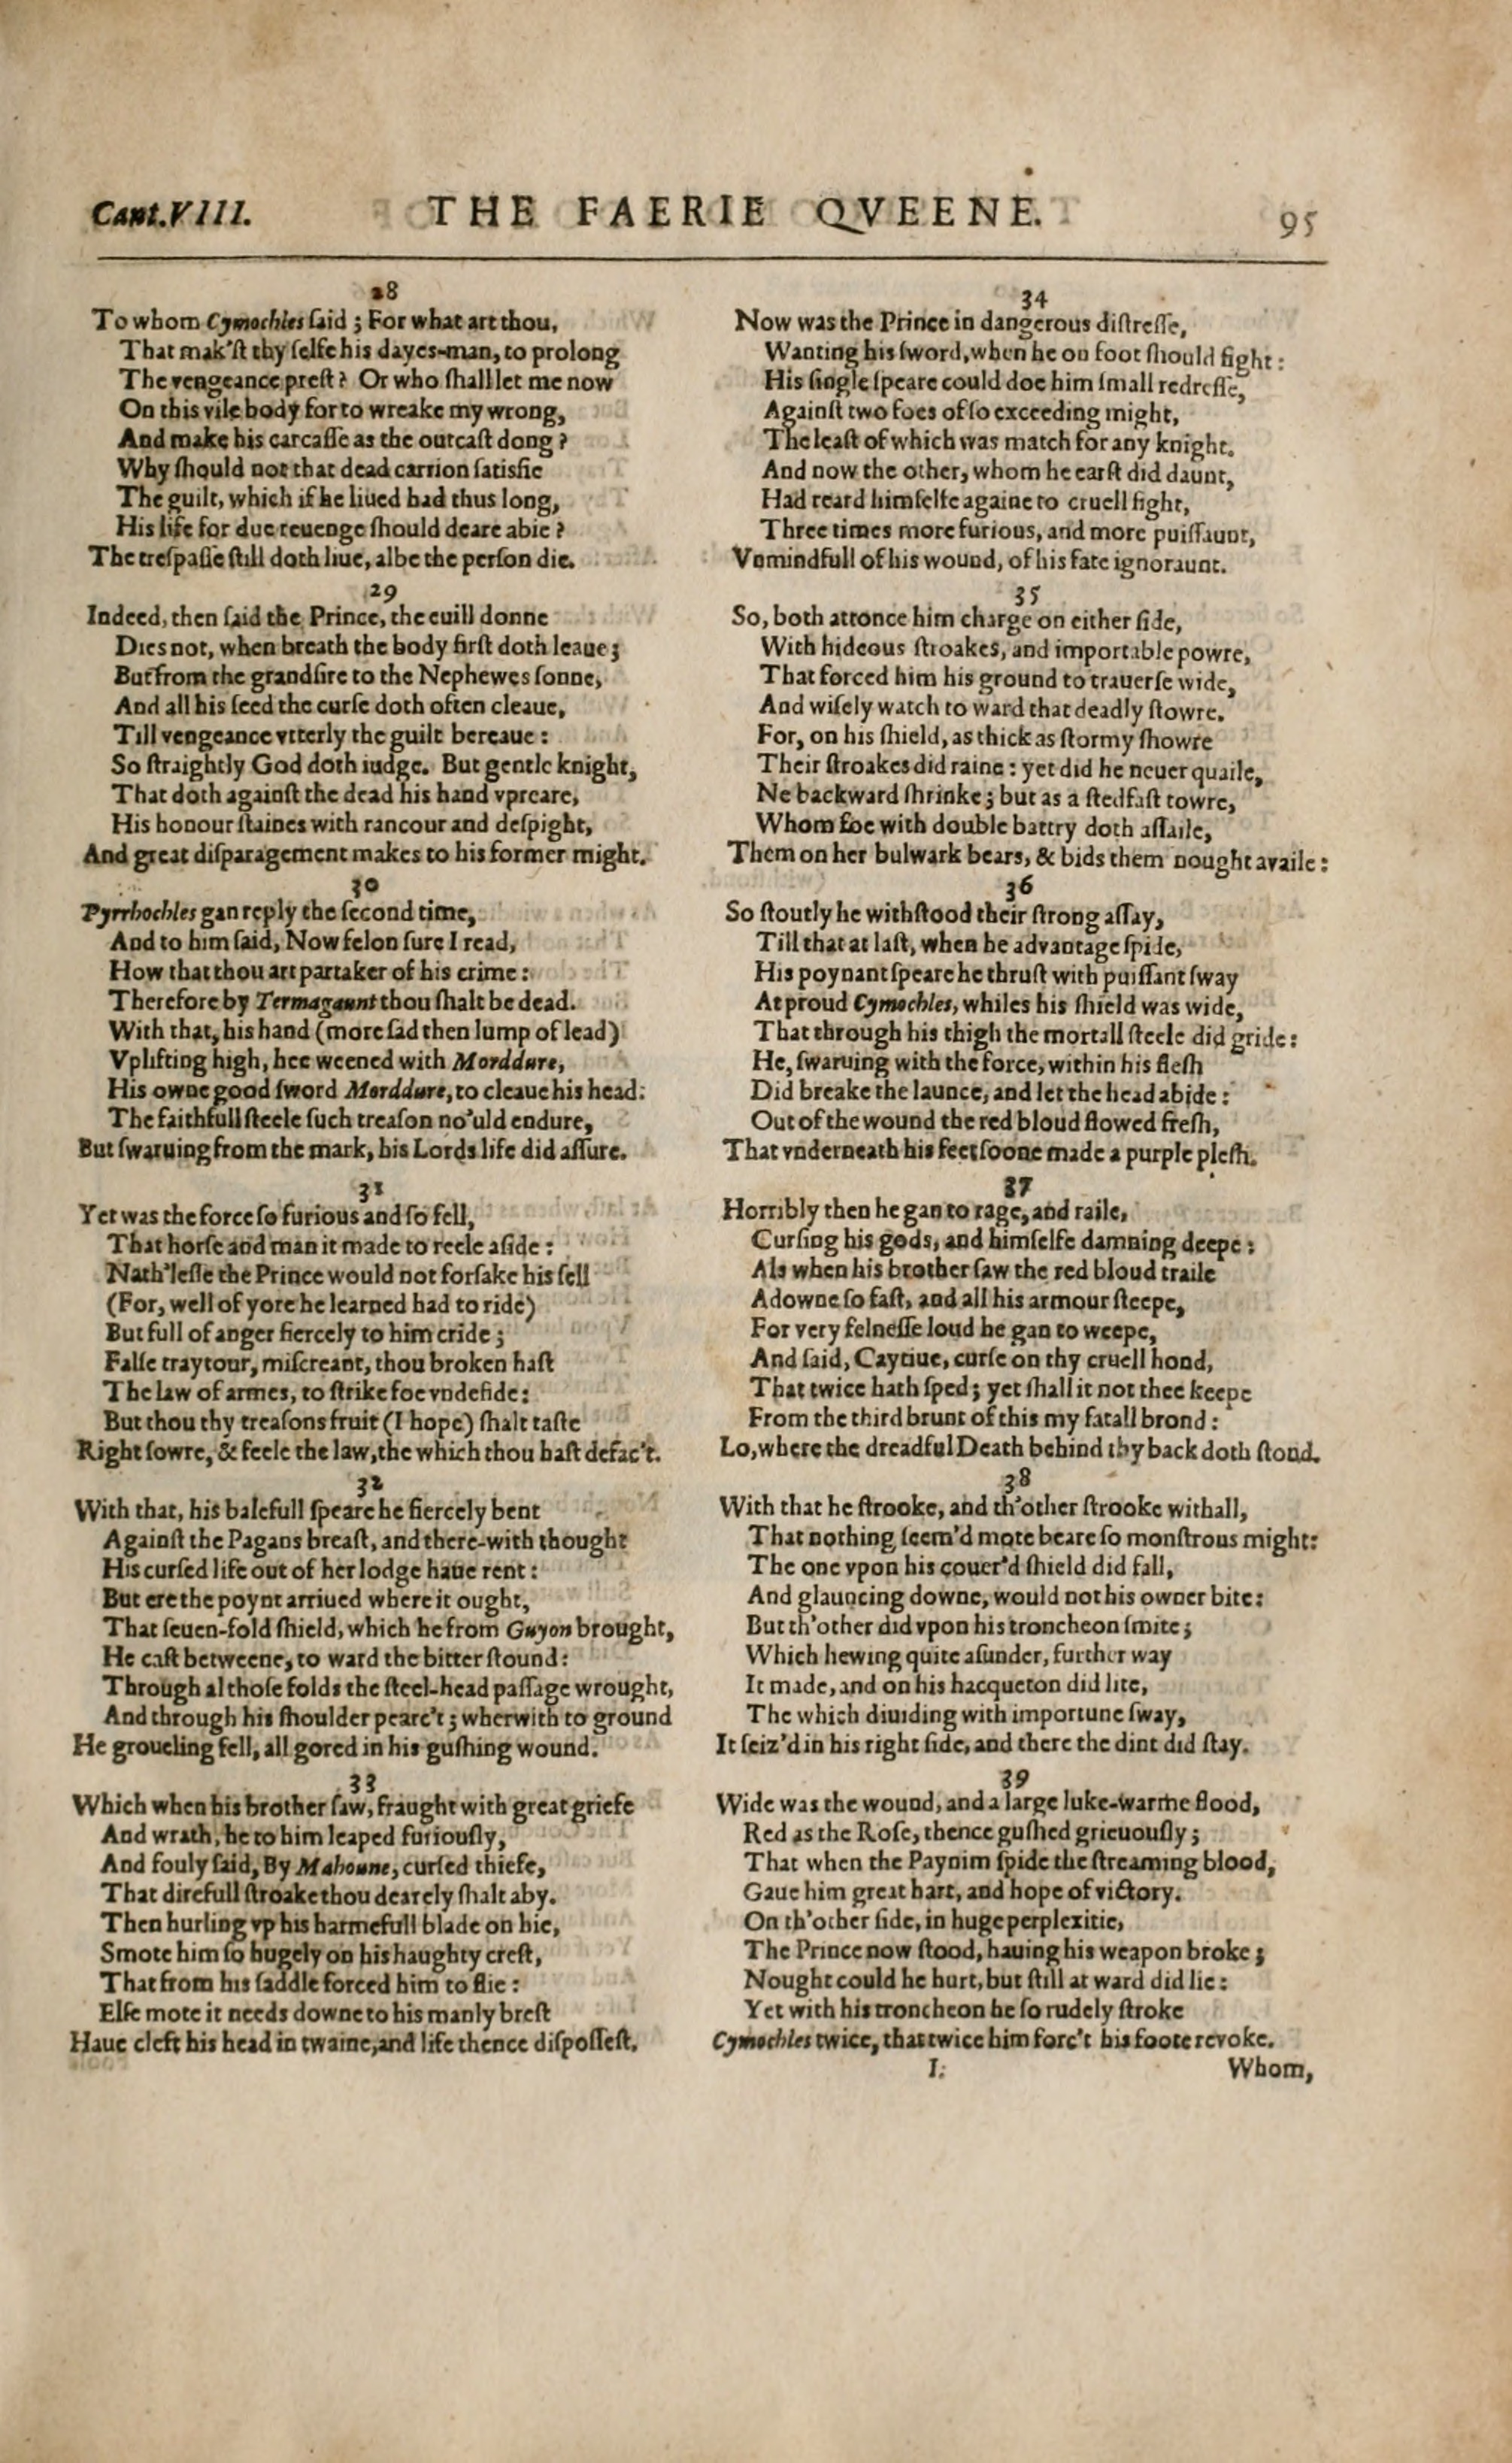 Cant.VIII. THE FAERIE QVEENE. 95
28
To whom Cymochles ſaid ; For what art thou,
That mak'ſt thy ſelfe his dayes-man, to prolong
The vengeance preſt ? Or who ſhall let me now
On this vile body for to wreake my wrong,
And make his carcaſſe as the outcaſt dong ?
Why ſhould not that dead carrion ſatisfie
The guilt, which if he liued had thus long,
His life for due reuenge ſhould deare abie ?
The treſpaſſe ſtill doth liue, albe the perſon die.
29
Indeed, then ſaid the Prince, the euill donne
Dies not, when breath the body firſt doth leaue ;
But from the grandſire to the Nephewes ſonne,
And all his ſeed the curſe doth often cleaue,
Till vengeance vtterly the guilt bereaue :
So ſtraightly God doth iudge. But gentle knight,
That doth againſt the dead his hand vpreare,
His honour ſtaines with rancour and deſpight,
And great diſparagement makes to his former might.
30
Pyrrhochles gan reply the ſecond time,
And to him ſaid, Now felon ſure I read,
How that thou art partaker of his crime :
Therefore by Termagaunt thou ſhalt be dead.
With that, his hand (more ſad then lump of lead)
Vplifting high, hee weened with Morddure,
His owne good ſword Morddure, to cleaue his head:
The faithfull ſteele ſuch treaſon no'uld endure,
But ſwaruing from the mark, his Lords life did aſſure.
31
Yet was the force ſo furious and ſo fell,
That horſe and man it made to reele aſide :
Nath'leſſe the Prince would not forſake his ſell
(For, well of yore he learned had to ride)
But full of anger fiercely to him cride ;
Falſe traytour, miſcreant, thou broken haſt
The law of armes, to ſtrike foe vndefide:
But thou thy treaſons fruit (I hope) ſhalt taſte
Right ſowre, & feele the law, the which thou haſt defac't.
32
With that, his balefull ſpeare he fiercely bent
Againſt the Pagans breaſt, and there-with thought
His curſed life out of her lodge haue rent :
But ere the poynt arriued where it ought,
That ſeuen-fold ſhield, which he from Guyon brought,
He caſt betweene, to ward the bitter ſtound:
Through al thoſe folds the ſteel-head paſſage wrought,
And through his ſhoulder pearc't ; wherwith to ground
He groueling fell, all gored in his guſhing wound.
33
Which when his brother ſaw, fraught with great griefe
And wrath, he to him leaped furiouſly,
And fouly ſaid, By Mahoune, curſed thiefe,
That direfull ſtroake thou dearely ſhalt aby.
Then hurling vp his harmefull blade on hie,
Smote him ſo hugely on his haughty creſt,
That from his ſaddle forced him to flie :
Elſe mote it needs downe to his manly breſt
Haue cleft his head in twaine, and life thence diſpoſſeſt.
34
Now was the Prince in dangerous diſtreſſe,
Wanting his ſword, when he on foot ſhould fight :
His ſingle ſpeare could doe him ſmall redreſſe,
Againſt two foes of ſo exceeding might,
The leaſt of which was match for any knight.
And now the other, whom he earſt did daunt,
Had reard himſelfe againe to cruell fight,
Three times more furious, and more puiſſaunt,
Vnmindfull of his wound, of his fate ignoraunt.
35
So, both attonce him charge on either ſide,
With hideous ſtroakes, and importable powre,
That forced him his ground to trauerſe wide,
And wiſely watch to ward that deadly ſtowre.
For, on his ſhield, as thick as ſtormy ſhowre
Their ſtroakes did raine : yet did he neuer quaile,
Ne backward ſhrinke ; but as a ſtedfaſt towre,
Whom foe with double battry doth aſſaile,
Them on her bulwark bears, & bids them nought availe :
36
So ſtoutly he withſtood their ſtrong aſſay,
Till that at laſt, when he advantage ſpide,
His poynant ſpeare he thruſt with puiſſant ſway
At proud Cymochles, whiles his ſhield was wide,
That through his thigh the mortall ſteele did gride :
He, ſwaruing with the force, within his fleſh
Did breake the launce, and let the head abide :
Out of the wound the red bloud flowed freſh,
That vnderneath his feet ſoone made a purple pleſh.
37
Horribly then he gan to rage, and raile,
Curſing his gods, and himſelfe damning deepe :
Als when his brother ſaw the red bloud traile
Adowne ſo faſt, and all his armour ſteepe,
For very felneſſe loud he gan to weepe,
And ſaid, Caytiue, curſe on thy cruell hond,
That twice hath ſped ; yet ſhall it not thee keepe
From the third brunt of this my fatall brond :
Lo, where the dreadful Death behind thy back doth ſtond.
38
With that he ſtrooke, and th'other ſtrooke withall,
That nothing ſeem'd mote beare ſo monſtrous might:
The one vpon his couer'd ſhield did fall,
And glauncing downe, would not his owner bite:
But th'other did vpon his troncheon ſmite ;
Which hewing quite aſunder, further way
It made, and on his hacqueton did lite,
The which diuiding with importune ſway,
It ſeiz'd in his right ſide, and there the dint did ſtay.
39
Wide was the wound, and a large luke-warme flood,
Red as the Roſe, thence guſhed grieuouſly ;
That when the Paynim ſpide the ſtreaming blood,
Gaue him great hart, and hope of victory.
On th'other ſide, in huge perplexitie,
The Prince now ſtood, hauing his weapon broke ;
Nought could he hurt, but ſtill at ward did lie :
Yet with his troncheon he ſo rudely ſtroke
Cymochles twice, that twice him forc't his foote revoke.
I. Whom,